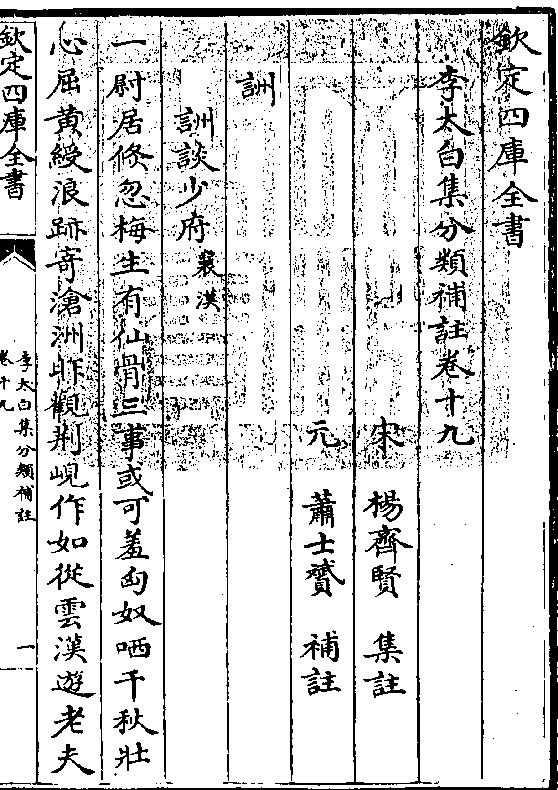 欽定四庫全書
李太白集分類補註卷十九
宋 楊齊賢 集註
元 蕭士贇 補註
詶
詶談少府 襄漢
一尉居倐忽梅生有仙骨三事或可羞匈奴哂千秋壯
心屈黄綬浪跡寄滄洲昨觀荆峴作如從雲漢遊老夫
欽定四庫全書
李太白集分類補註
卷十九
一